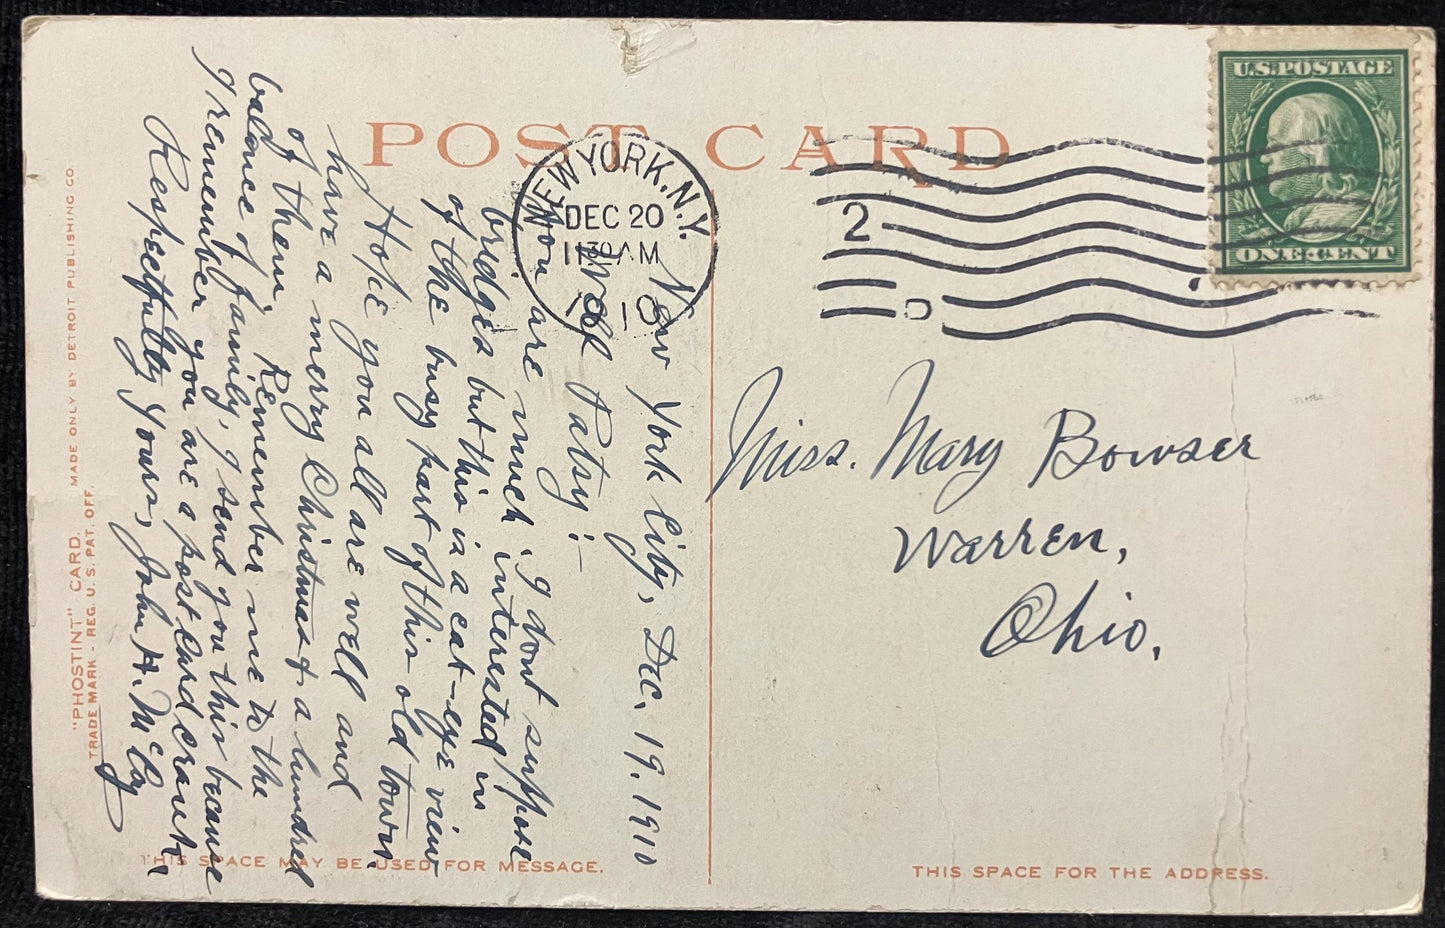 POST CARD
U.S. POSTAGE
ONE CENT
NEW YORK, N.Y.
DEC 20
1130 AM
1910
2
D
New York City, Dec. 19. 1910
Well Patsy:—
I dont suppose
you are much interested in
bridges but this is a cat-eye view
of the busy part of this old town.
Hope you all are well and
have a merry Christmas + a hundred
of them. Remember me to the
balance of family. I send you this because
I remember you are a post card crank.
Respectfully Yours, John H. McCoy
Miss. Mary Bowser
Warren,
Ohio.
"PHOSTINT" CARD. MADE ONLY BY DETROIT PUBLISHING CO
TRADE MARK - REG. U. S. PAT. OFF.
THIS SPACE MAY BE USED FOR MESSAGE.
THIS SPACE FOR THE ADDRESS.